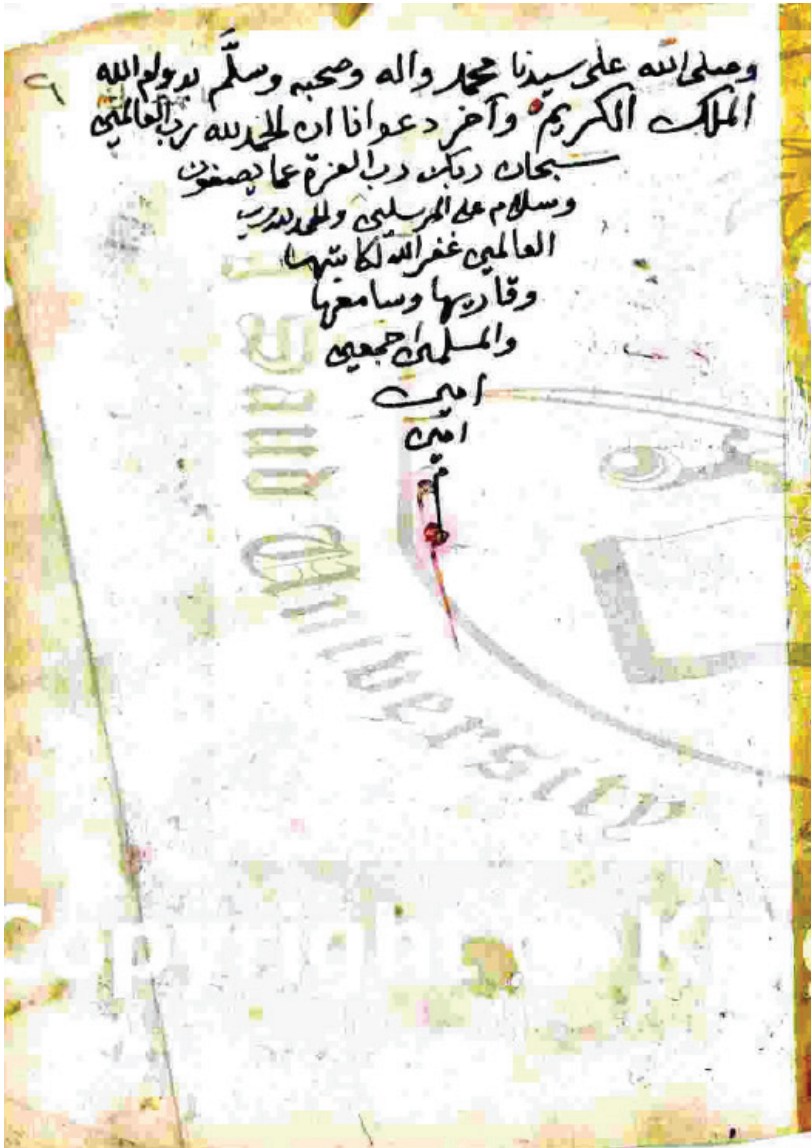 وصلى الله على سيدنا محمد وآله وصحبه وسلم بدوام الله
الملك الكريم وآخر دعوانا ان الحمد لله رب العالمين
سبحان ربك رب العزة عما يصفون
وسلام على المرسلين والحمد لله رب
العالمين غفر الله لكاتبها
وقاريها وسامعها
والمسلمين اجمعين
امين
امين
م
University